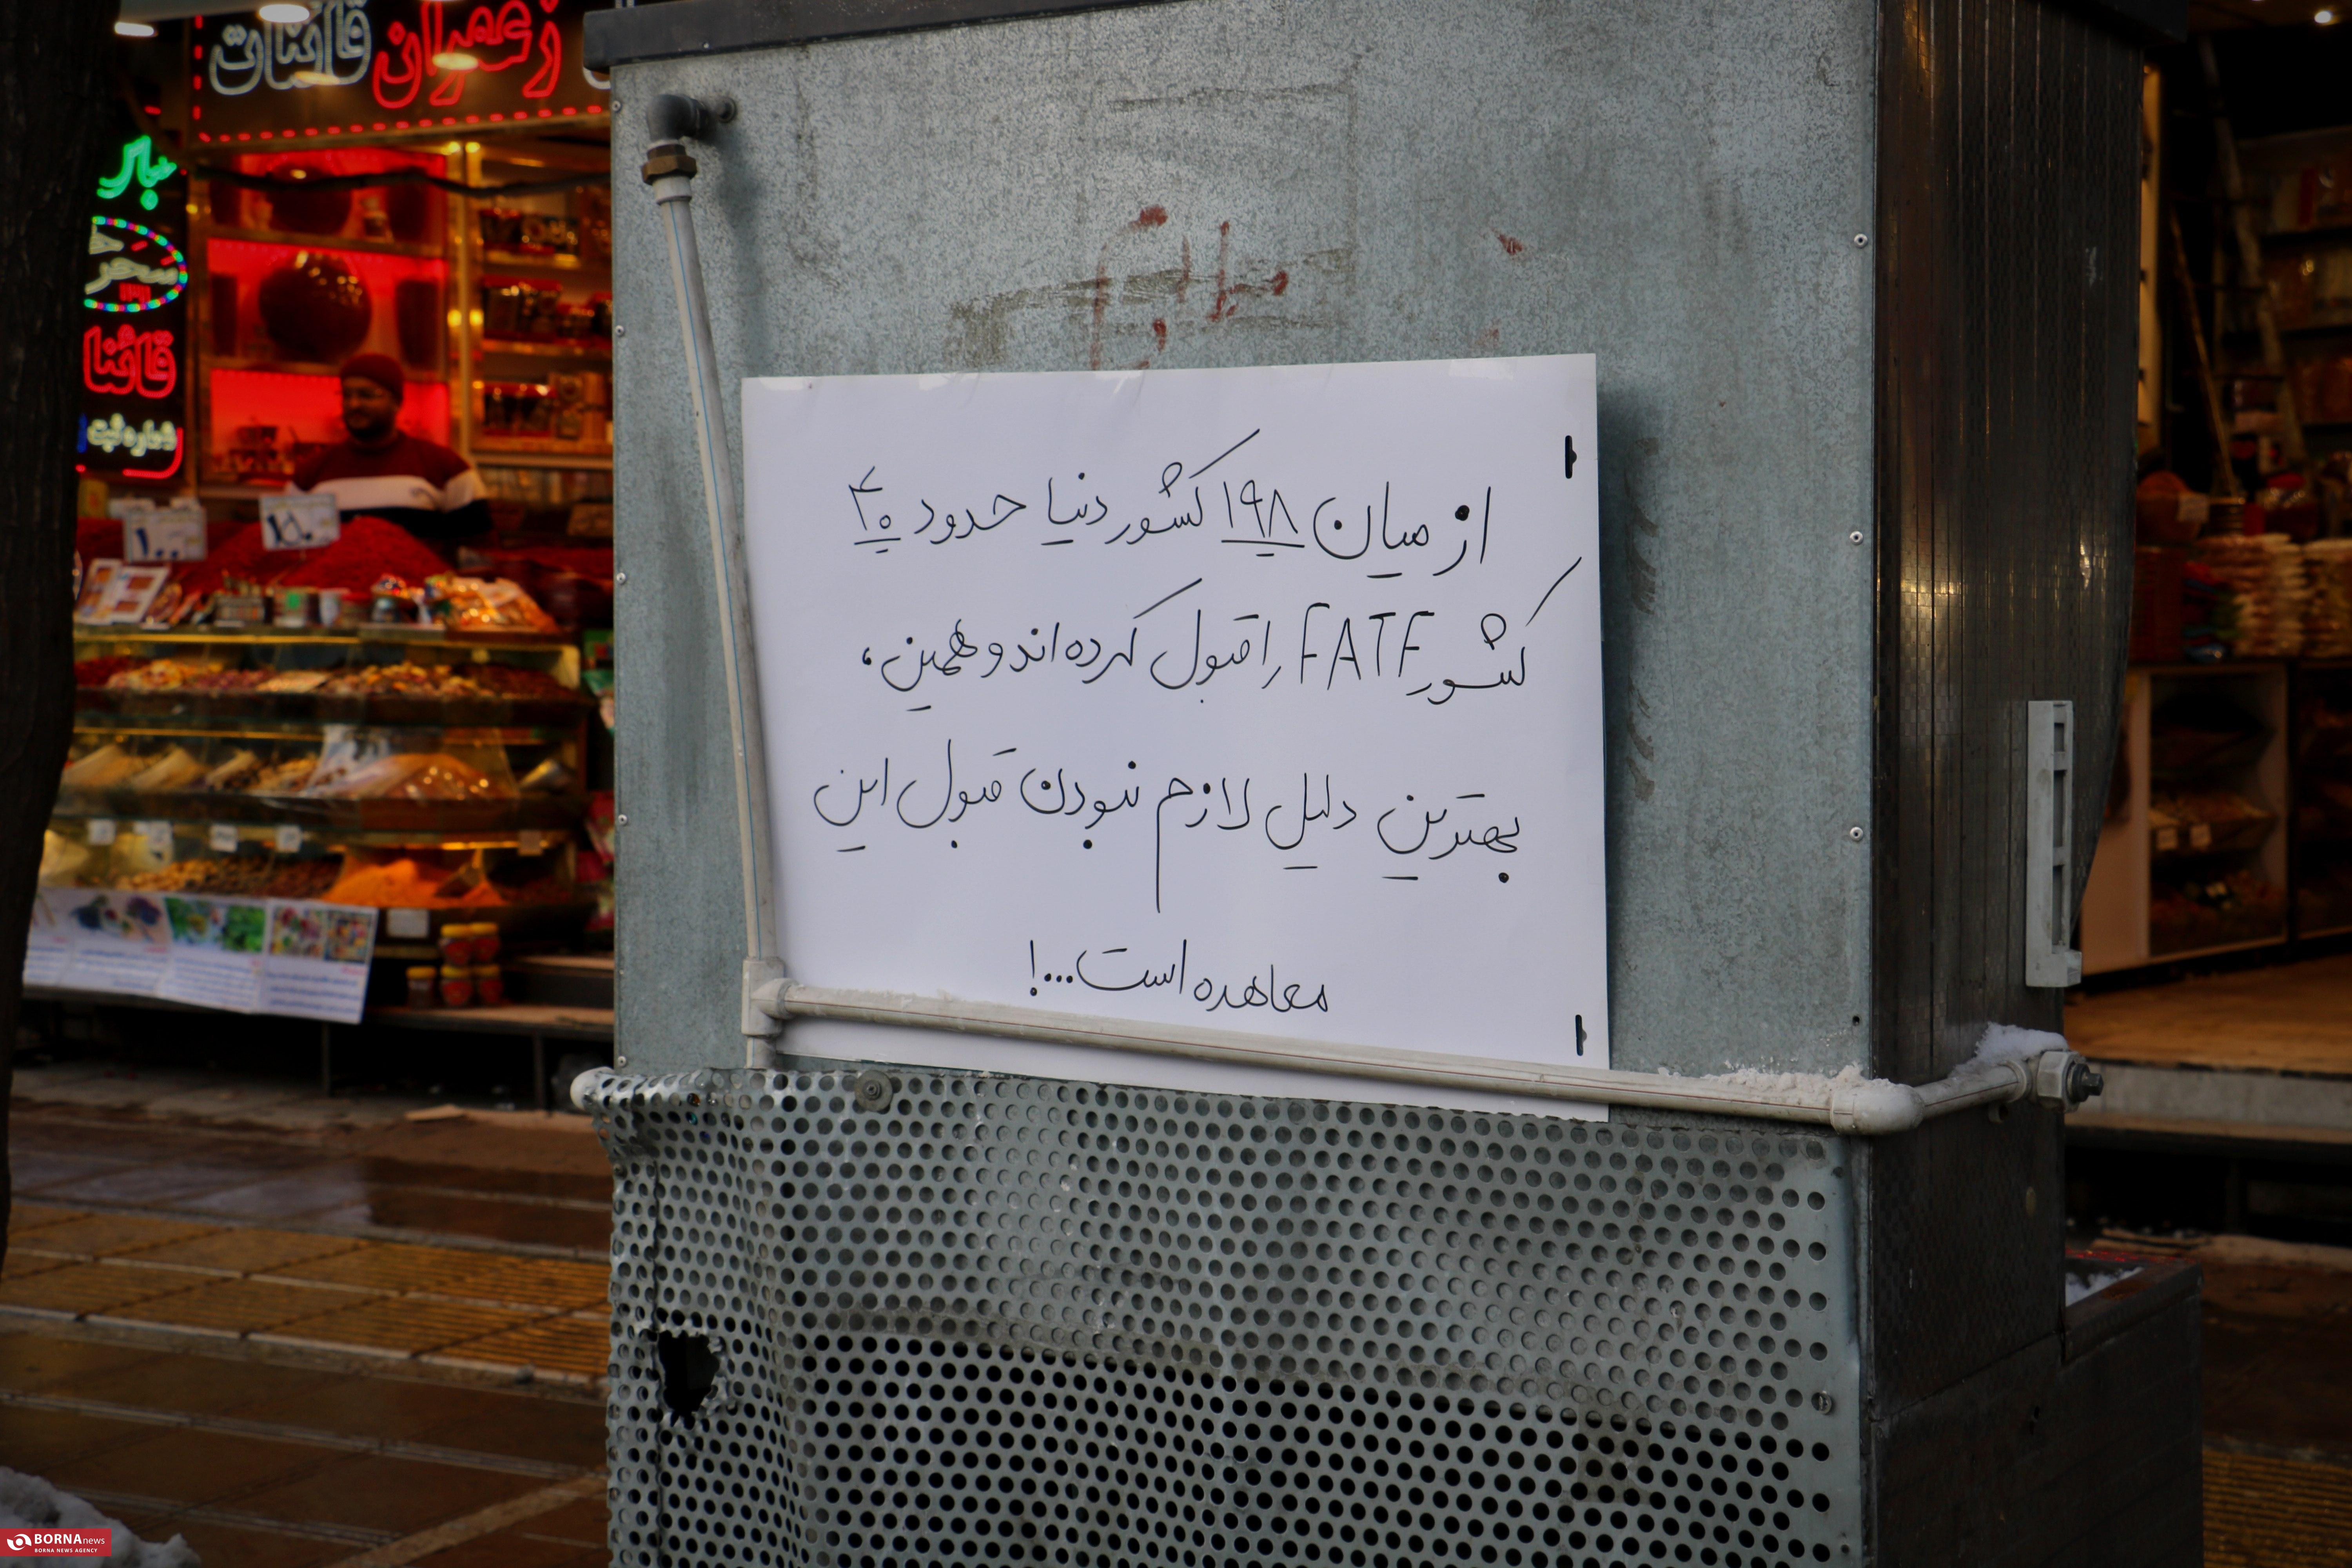 زعفران قائنات
سحر
قائنا
شماره ثبت
از میان ۱۹۸ کشور دنیا حدود ۴۰
کشور FATF را قبول کرده اند و همین،
بهترین دلیل لازم نبودن قبول این
معاهده است...!
BORNA news
BORNA NEWS AGENCY